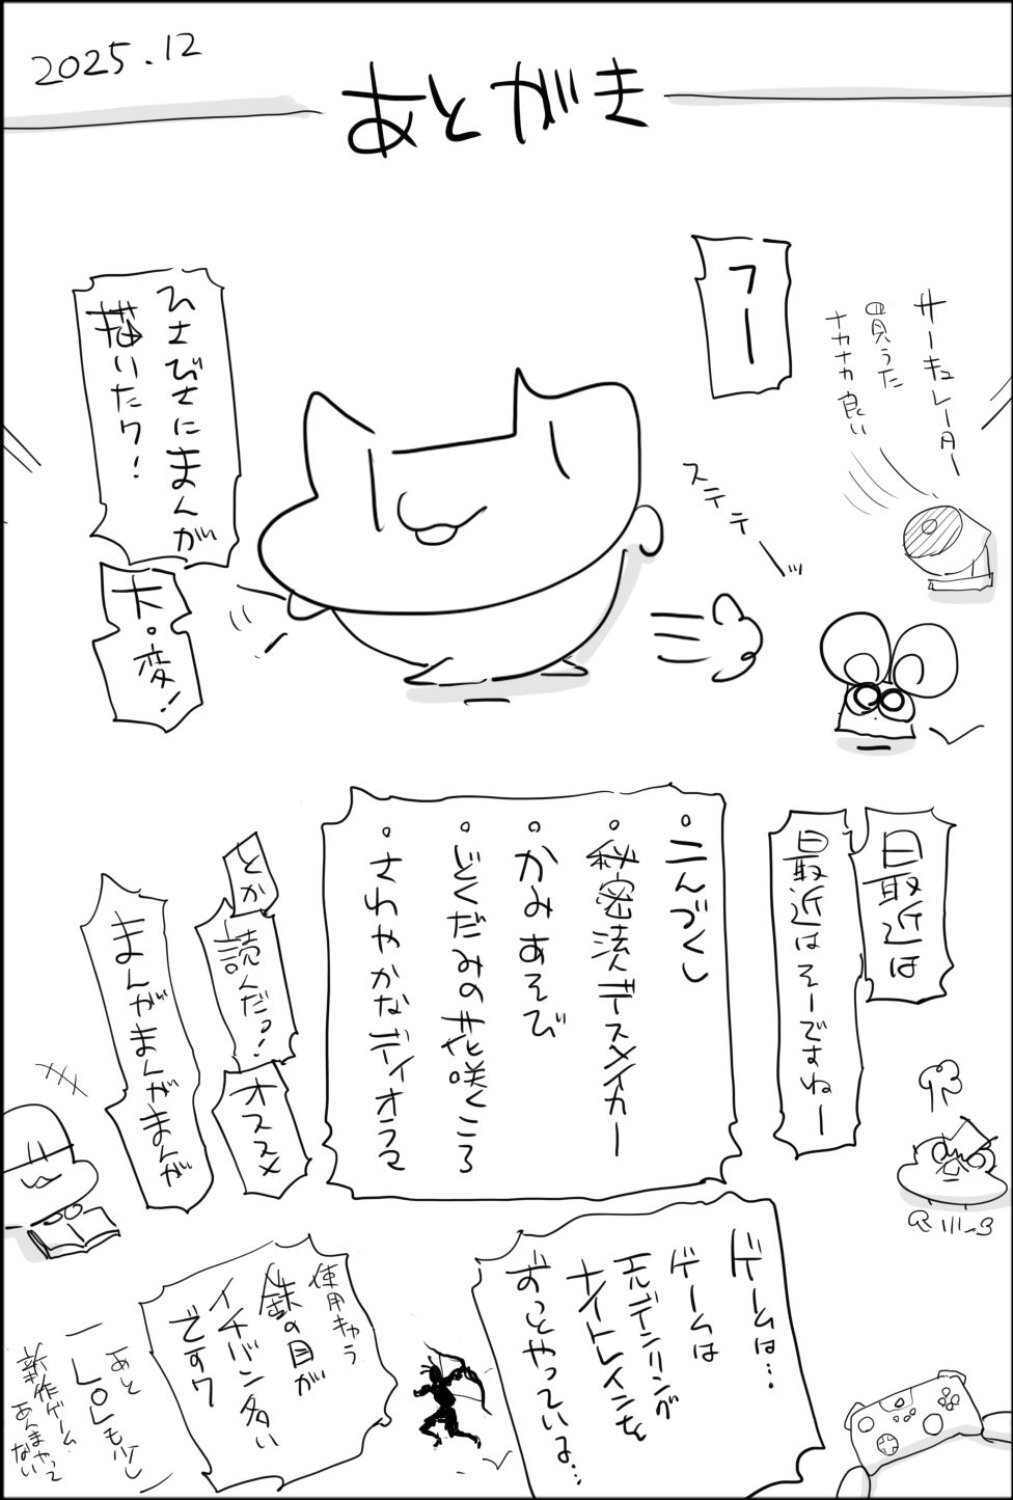 2025.12
あとがき
サーキュレーター
買うた
ナカナカ良い
フー
ステテーッ
ひさびさにまんが
描いたワ!
大。変!
最近は
最近はそーですねー
。にんづくし
。秘密法人デスメイカー
。かみあそび
。どくだみの花咲くころ
。さわやかなディオラマ
とか
読んだっ!
オススメ
まんがまんがまんが
ゲームは…
ゲームは
エルデンリング
ナイトレインを
ずっとやっているよ…
使用キャラ
鉄の目が
イチバン多い
ですワ
あと
LoLも少し
新作ゲーム
あんまやって
ない